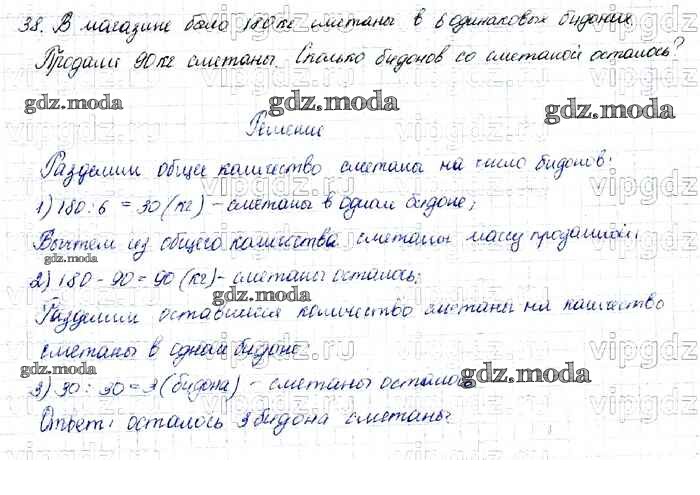 38. В магазине было 180 кг сметаны в 6 одинаковых бидонах.
Продали 90 кг сметаны. Сколько бидонов со сметаной осталось?
gdz.moda gdz.moda gdz.moda
Решение
Разделим общее количество сметаны на число бидонов:
vipgdz.ru vipgdz.ru
1) 180 : 6 = 30 (кг) - сметаны в одном бидоне;
Вычтем из общего количества сметаны массу проданной:
gdz.moda gdz.moda
2) 180 - 90 = 90 (кг) - сметаны осталось;
gdz.moda
Разделим оставшееся количество сметаны на количество
сметаны в одном бидоне:
gdz.moda gdz.moda
3) 90 : 30 = 3 (бидона) - сметаны осталось
gdz.moda
Ответ: осталось 3 бидона сметаны.
gdz.moda